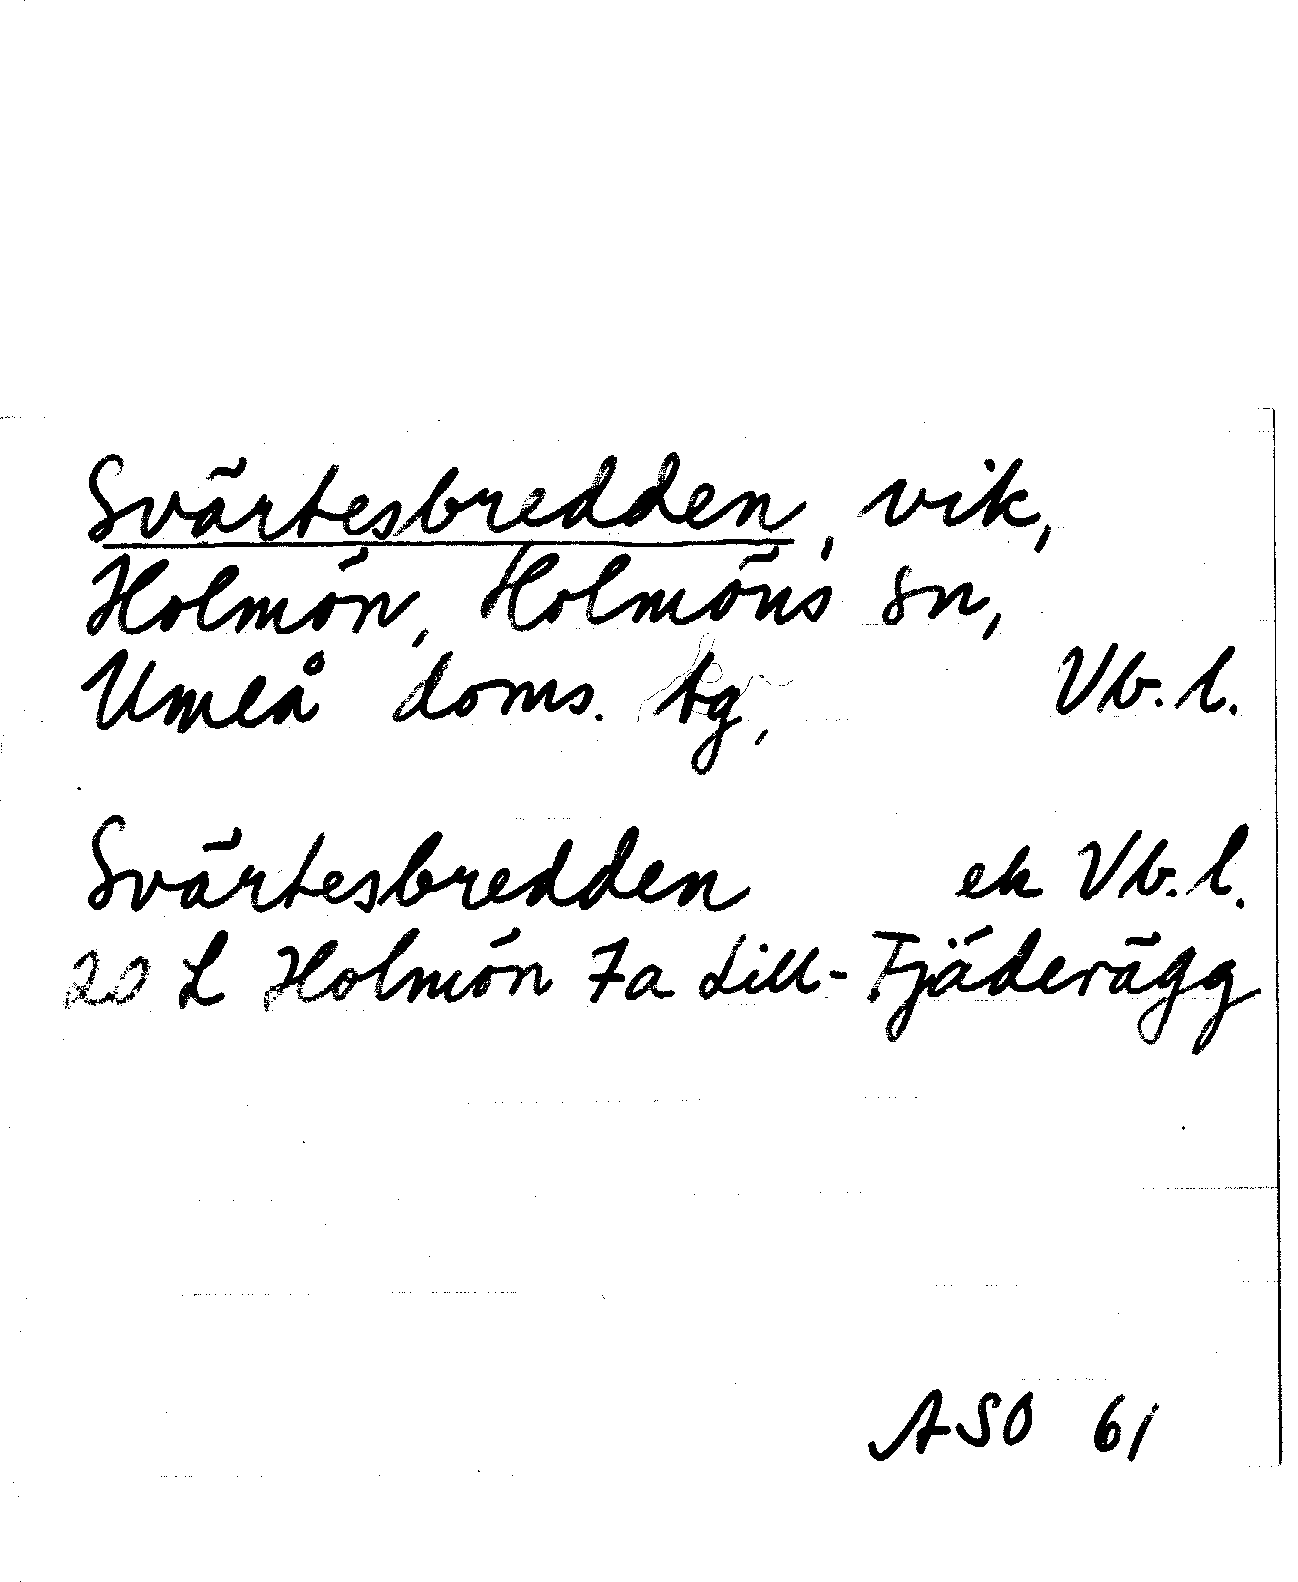 Svärtesbredden, vik,
Holmön, Holmöns sn,
Umeå doms. tg, Vb. l.
Svärtesbredden ek Vb. l.
20 L Holmön 7a Lill-Fjäderägg
ASO 61